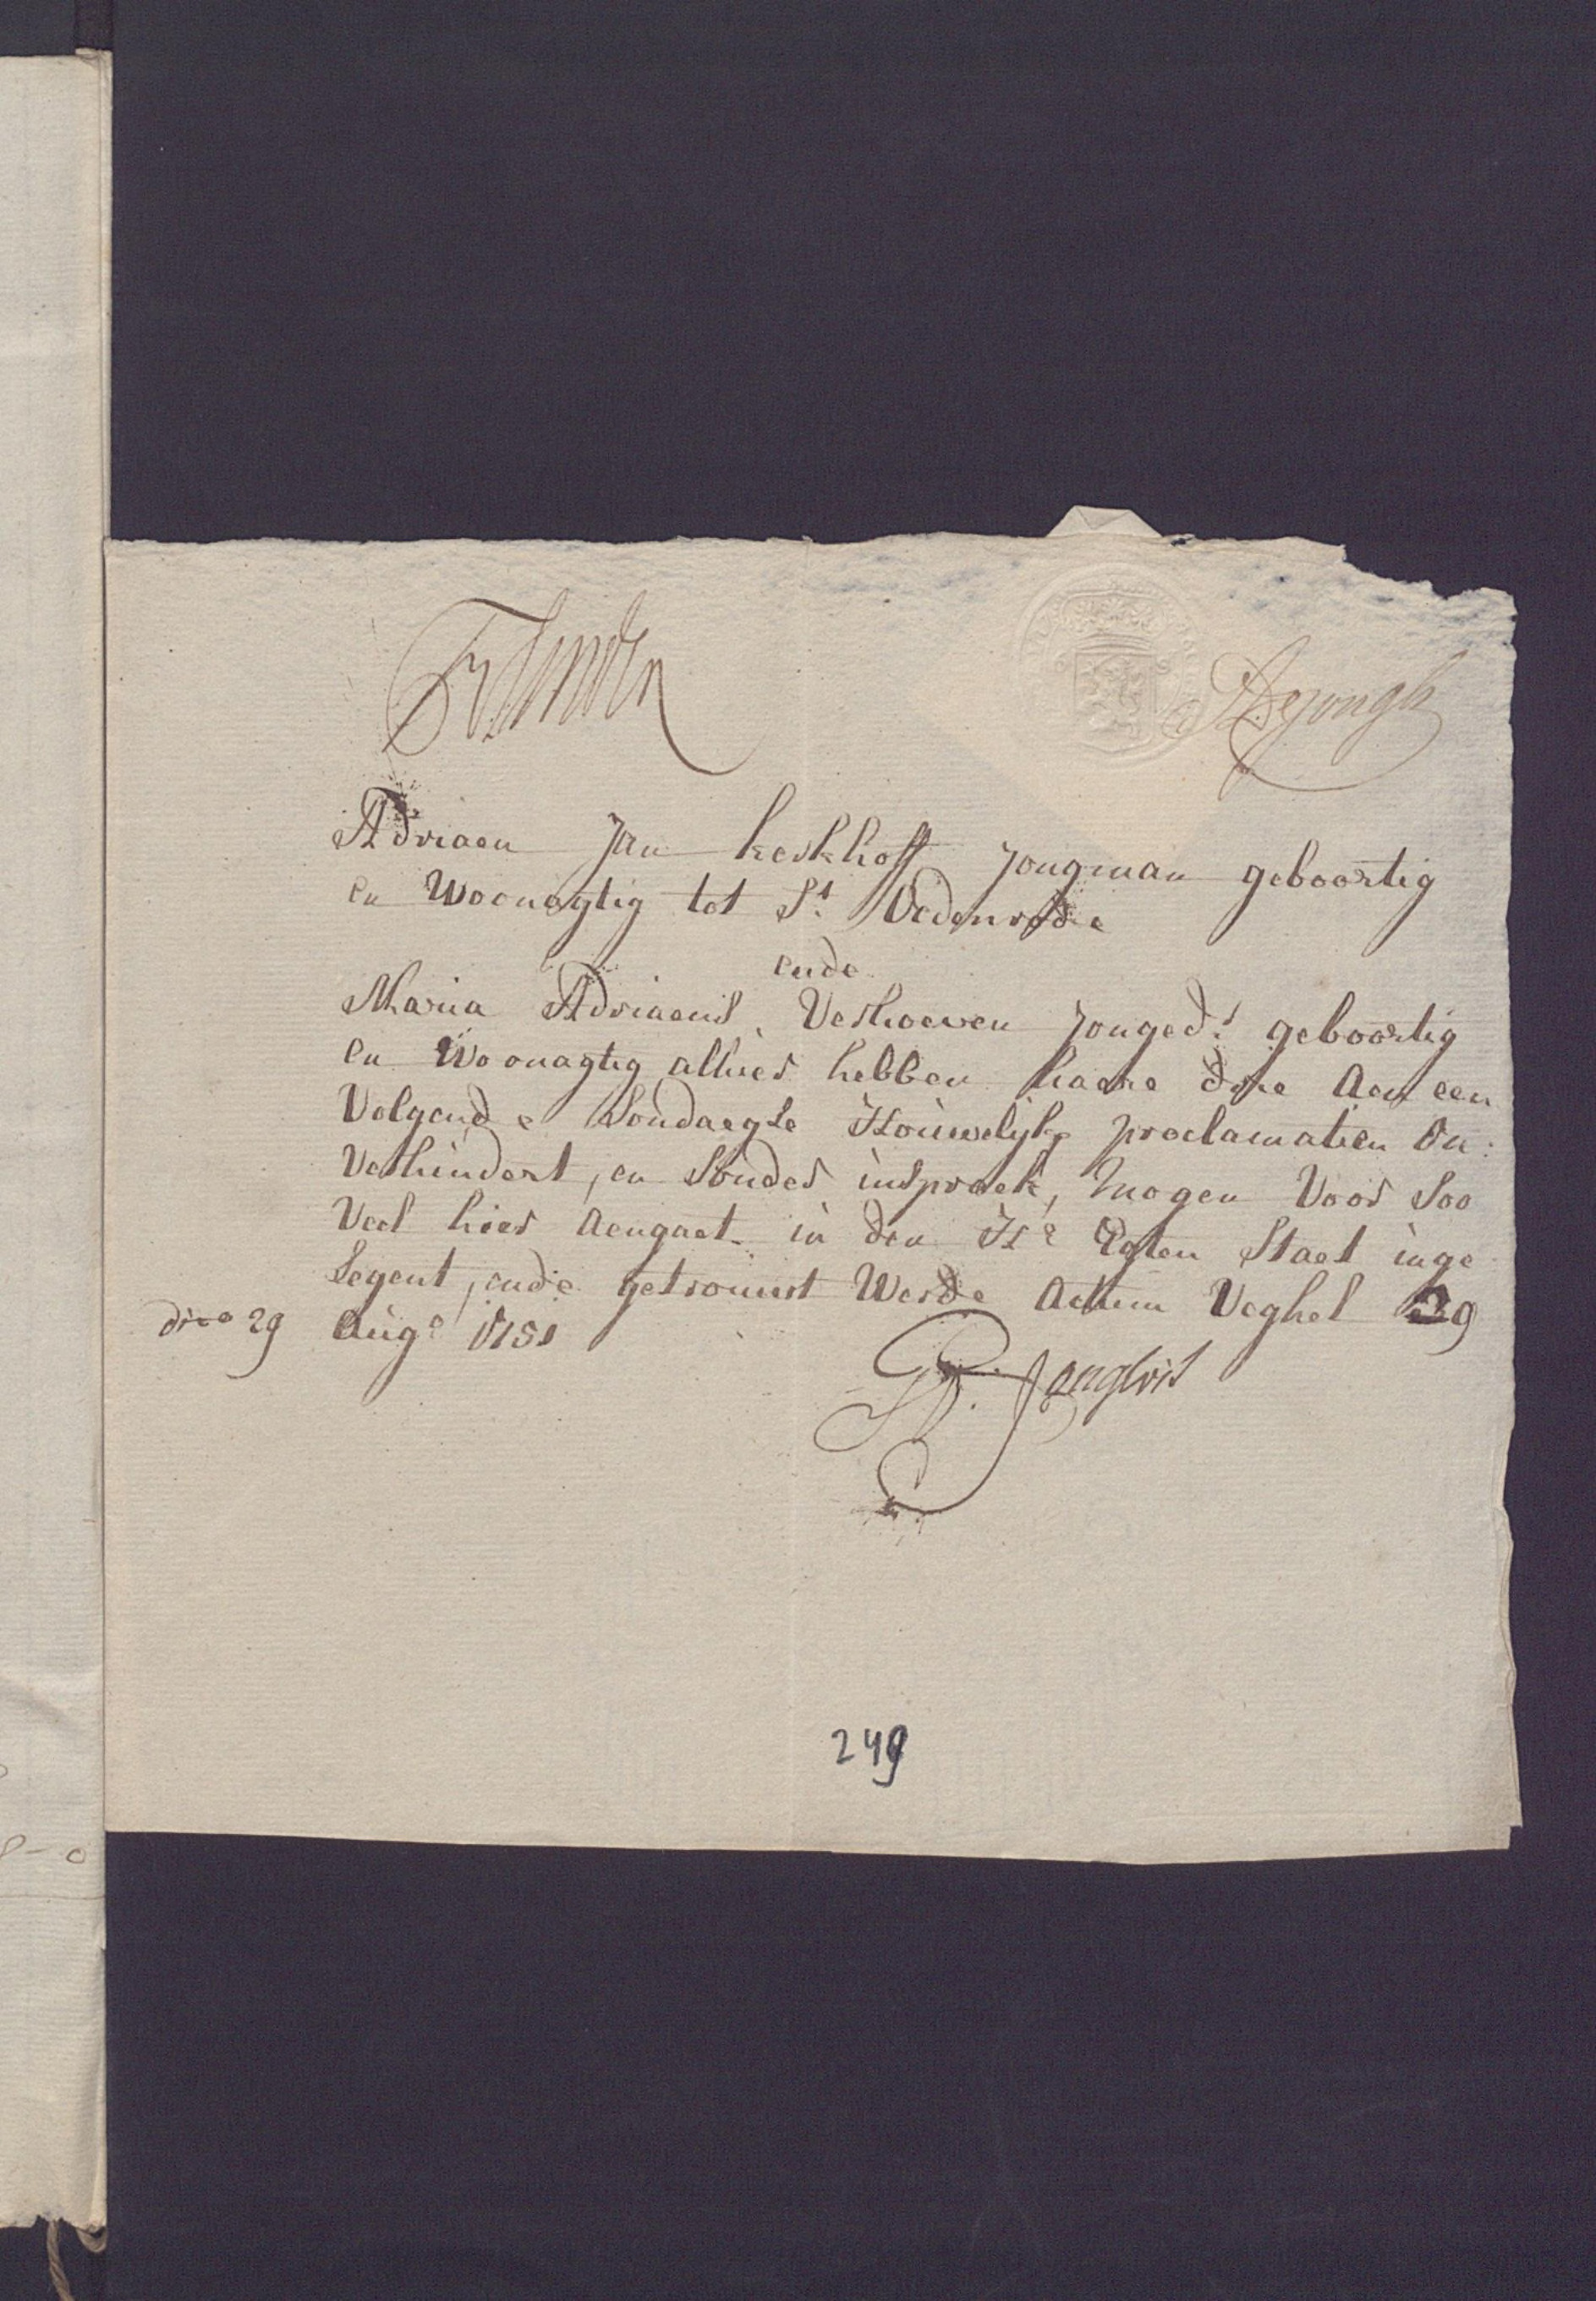 Dejongh
Adriaen Jan kerkhoff Jongman geboortig
en Woonagtig tot St. Oedenrode
ende
Maria Adriaens Verhoeven Jonged.r geboortig
en Woonagtig alhier hebben haere drie Aen een
Volgende Sondaegse Houwelijks proclamatien On:
Verhindert, en Sonder inspraek, mogen Voor Soo
Veel hier Aengaet in den H.e Egten Staet inge
Segent, ende getrouwt Werde Actum Veghel 29
dico 29 Aug.o 1751
249